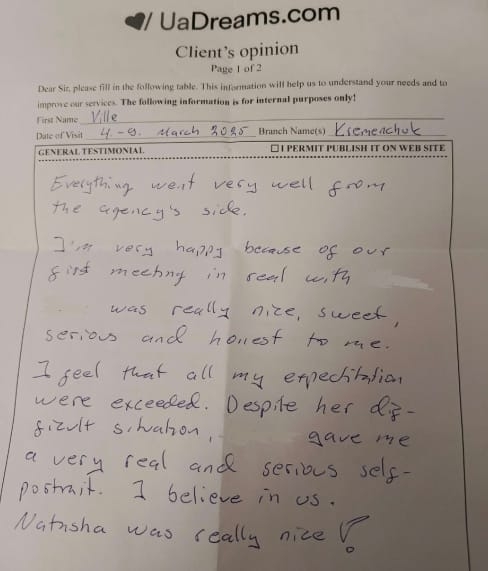 UaDreams.com
Client's opinion
Page 1 of 2
Dear Sir, please fill in the following table. This information will help us to understand your needs and to
improve our services. The following information is for internal purposes only!
First Name Ville
Date of Visit 4.-9. March 2025 Branch Name(s) Kremenchuk
GENERAL TESTIMONIAL ☐ I PERMIT PUBLISH IT ON WEB SITE
Everything went very well from
the agency's side.
I'm very happy because of our
first meeting in real with
was really nice, sweet,
serious and honest to me.
I feel that all my expectitation
were exceeded. Despite her dif-
ficult situation, gave me
a very real and serious self-
portrait. I believe in us.
Natasha was really nice!